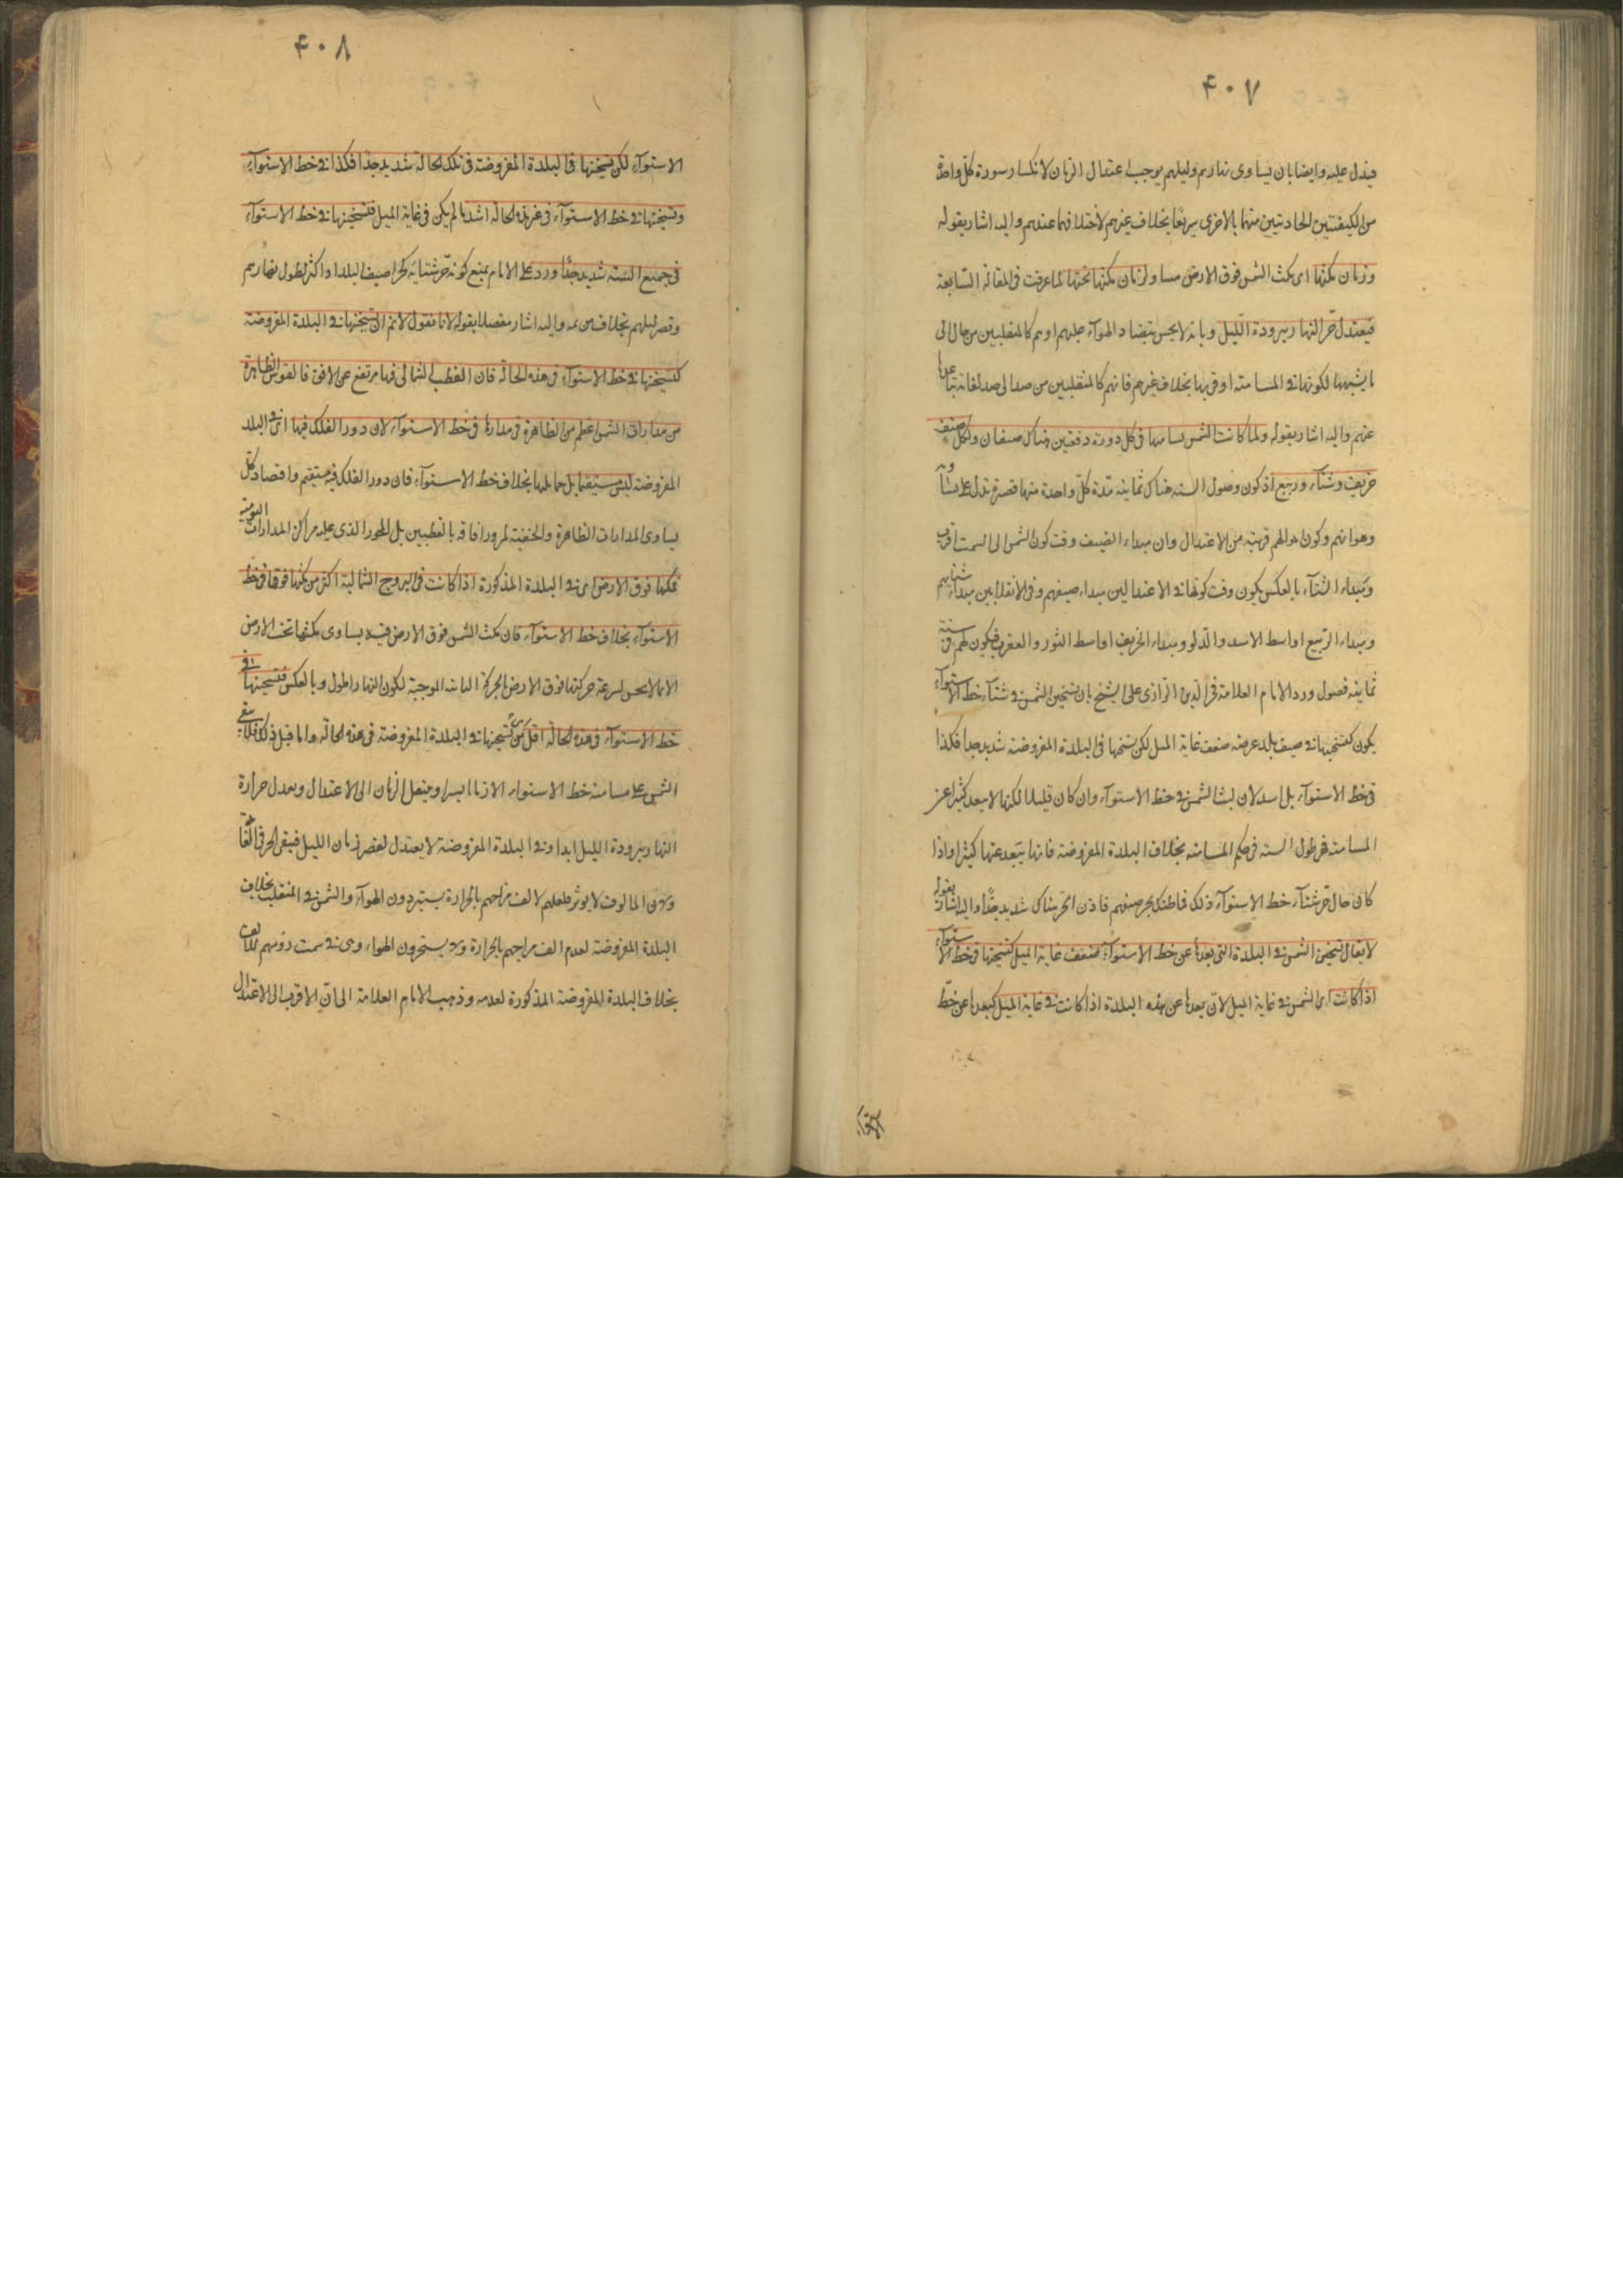 ۴۰۷
فيدل عليه وايضا بان يساوى نهارهم وليلهم يوجب اعتدال الزمان لانكسار سورة كل واحدة
من الكيفيتين الحادثتين منهما بالاخرى سريعًا بخلاف غيرهم لاختلافهما عندهم واليه اشار بقوله
وزمان مكثها اى مكث الشمس فوق الارض مساو لزمان مكثها تحتها لما عرفت فى المقالة السابعة
فيعتدل حرّ النهار ببرودة اللّيل وبانه لا يحس بتضاد الهوآء عليهم اوهم كالمنتقلين من حال الى
ما يشبهها لكونها فى المسامتة او قربها بخلاف غيرهم فانهم كالمنتقلين من ضد الى ضد لغاية تباعدها
عنهم واليه اشار بقوله ولما كانت الشمس تسامتها فى كل دورة دفعتين هناك صيفان ولكل صيف
خريف وشتآء وربيع اذ كون فصول السنة هناك ثمانية مدّة كلّ واحدة منها قصيرة تدل على تشابه
وهوائهم وكون احوالهم قريبة من الاعتدال وان مبداء الصيف وقت كون الشمس الى السمت اقرب
ومبداء الشتآء بالعكس يكون وقت كونها فى الاعتدالين مبداء صيفهم وفى الانقلابين مبداء شتائهم
ومبداء الرّبيع اواسط الاسد والدّلو ومبداء الخريف اواسط الثور والعقرب فيكون لهم فى سنة
ثمانية فصول ورد الامام العلامة فخر الدين الرازى على الشيخ بان تسخين الشمس فى شتآء خط الاستوآء
يكون كتسخينها فى صيف بلد عرضه ضعف غاية الميل لكن تسخنها فى البلدة المفروضة شديد جدا فكذا
فى خط الاستوآء بل اشد لان لبث الشمس فى خط الاستوآء وان كان قليلا لكنها لا يبعد كثيرا عن
المسامتة فهى طول السنة فى حكم المسامتة بخلاف البلدة المفروضة فانها يبعد عنها كثيرا واذا
كان حال حرّ شتآء خط الاستوآء ذلك فما ظنك بحر صيفهم فاذن الحر هناك شديد جدًّا واليه اشار بقوله
لا يقال تسخين الشمس فى البلدة التى بعدها عن خط الاستوآء ضعف غاية الميل كتسخينها فى خط الاستوآء
اذا كانت اى الشمس فى غاية الميل لان بعدها عن هذه البلدة اذا كانت فى غاية الميل كبعدها عن خطّ
۴۰۸
الاستوآء لكن تسخنها فى البلدة المفروضة فى تلك الحالة شديد جدّا فكذا فى خط الاستوآء
وتسخينها فى خط الاستوآء فى غير هذه الحالة اشد ما لم يكن فى غاية الميل فتسخينها فى خط الاستوآء
فى جميع السّنة شديد جدًّا ورد على الامام بمنع كونه حرّ شتائه كحرّ صيف البلد اذا كثر لطول نهارهم
وقصر ليلهم بخلاف من واليه اشار مفصلا بقوله لانا نقول لا نم ان تسخينها فى البلدة المفروضة
كتسخينها فى خط الاستوآء فى هذه الحالة فان القطب الشمالى فيها مرتفع عن الافق فالقوس الظاهرة
من مدارات الشمس اعظم من الظاهرة فى مدارها فى خط الاستوآء لان دور الفلك فيها اى فى البلد
المفروضة ليس مستقيما بل حمايليا بخلاف خط الاستوآء فان دور الفلك فيه مستقيم واقصاد كل
يساوى المدارات الظاهرة والخفية لمرور افاقه بالقطبين بل المحور الذى عليه مراكز المدارات اليومية
فمكثها فوق الارض اى فى البلدة المذكورة اذا كانت فى البروج الشمالية اكثر من مكثها فوقها فى خط
الاستوآء بخلاف خط الاستوآء فان مكث الشمس فوق الارض فيه يساوى مكثها تحت الارض
الا ما لا يحس لسرعة حركتها فوق الارض بالحركة الثانية الموجبة لكون النهار اطول وبالعكس فتسخينها فى
خط الاستوآء فى هذه الحالة اقل من تسخينها فى البلدة المفروضة فى هذه الحالة واما قبل ذلك فلا يبقى
الشمس على مسامتة خط الاستواء الا زمانا يسيرا وينتقل الزمان الى الاعتدال وبعدل حرارة
النهار ببرودة الليل ابدا وفى البلدة المفروضة لا يعتدل لقصر زمان الليل فيبقى الحر فى الغاية
المالوف لا يوثر فلعلهم لالف مزاجهم بالحرارة يستبردون الهوآء والشمس فى المنقلب بخلاف
البلدة المفروضة لعدم الف مزاجهم بالحرارة يستحرون الهواء وهى فى سمت رؤسهم للالف
بخلاف البلدة المفروضة المذكورة لعدمه وذهب الامام العلامة الى ان الاقرب الى الاعتدال